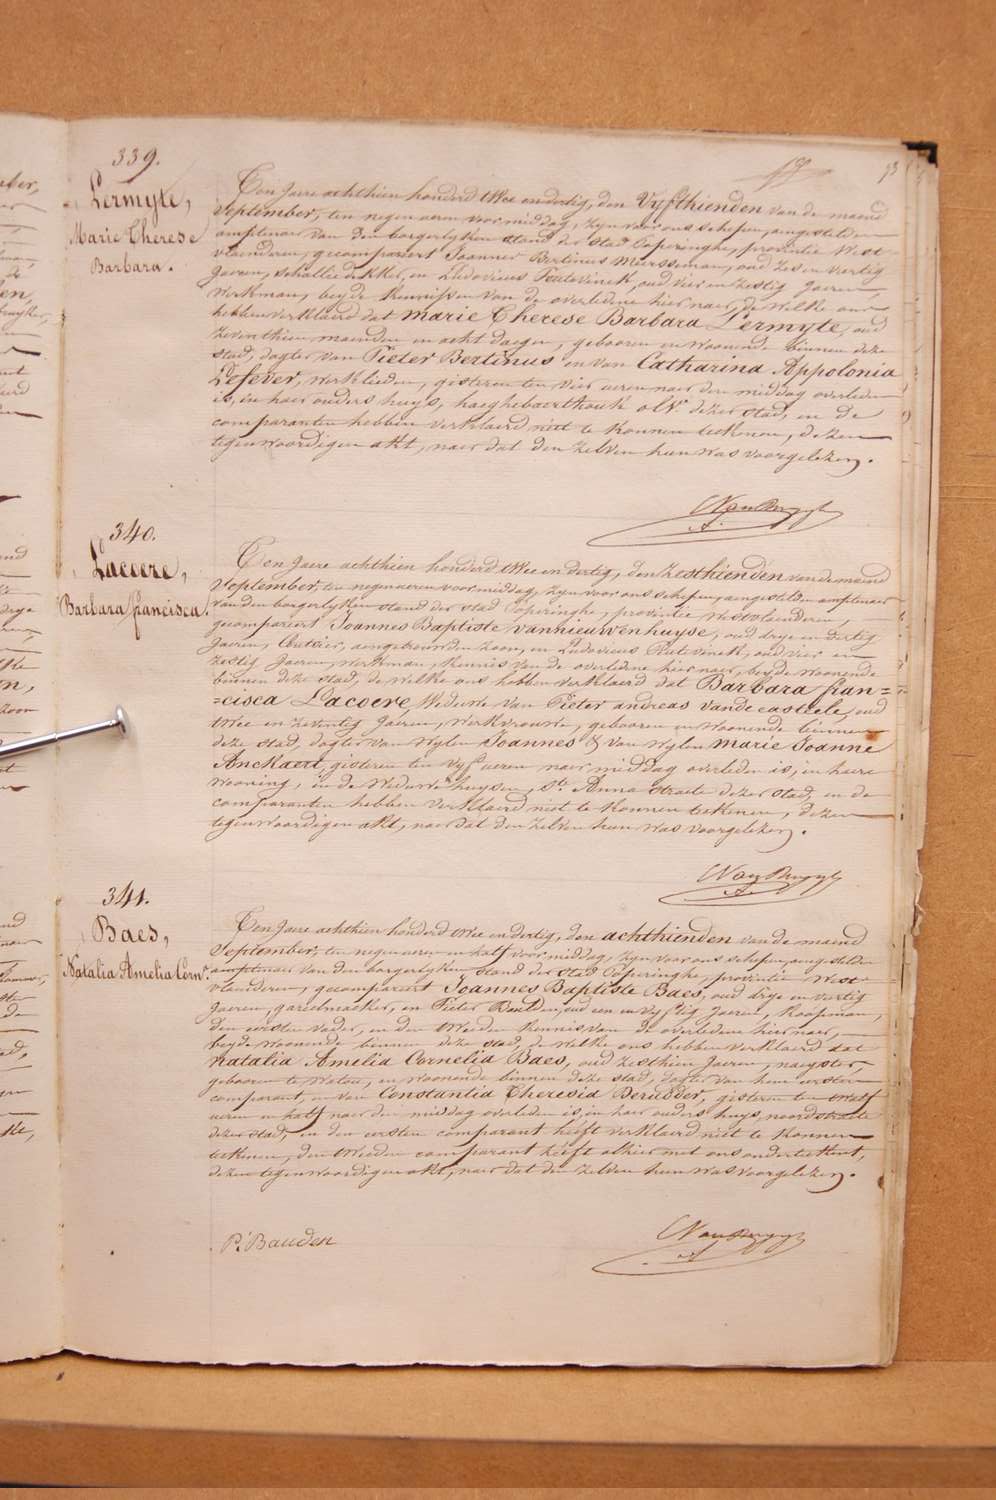 93
339.
Lermyte,
Marie Therese
Barbara.
Ten Jaere achthien honderd twee en dertig, den Vyfthienden van de maend
September, ten negen uren voor middag, zyn voor ons schepen, aengestelden
amptenaer van den borgerlyken stand der stad Poperinghe, provintie West-
vlaenderen, gecompareert Joannes Bertinus Meersseman, oud zes en veertig
Jaeren, schaliedekker, en Ludovicus Pattevinck, oud vier en zestig Jaeren,
Werkman, beyde kennissen van de overledene hier naer, de welke ons
hebben verklaerd dat Marie Therese Barbara Lermyte, oud
zeventhien maenden en acht daegen, gebooren en woonende binnen deze
stad, dogter van Pieter Bertinus en van Catharina Appolonia
Lefever, werklieden, gisteren ten vier uren naer den middag overleden
is, in haer ouders huys, haeghebaerthoek dezer stad, en de
comparanten hebben verklaerd niet te konnen teekenen, dezen
tegenwoordigen akt, naer dat den zelven hun was voorgelezen.
340.
Lacoere,
Barbara francisca.
Ten Jaere achthien honderd twee en dertig, den Zesthienden van de maend
September, ten negen uren voor middag, zyn voor ons schepen, aengestelden amptenaer
van den borgerlyken stand der stad Poperinghe, provintie Westvlaenderen,
gecompareert Joannes Baptiste vannieuwenhuyse, oud drye en dertig
Jaeren, aengetrouwden zoon, en Ludovicus Pattevinck, oud vier en
zestig Jaeren, Werkman, kennis van de overledene hier naer, beyde woonende
binnen deze stad, de welke ons hebben verklaerd dat Barbara fran=
=cisca Lacoere, Weduwe van Pieter andreas vandecasteele, oud
twee en zeventig Jaeren, werkvrouwe, gebooren en woonende binnen
deze stad, dogter van wylen Joannes & van wylen marie Joanne
Anckaert, gisteren ten vyf uren naer middag overleden is, in haere
wooning, in de Weduwe huysen, St. Anna straete dezer stad, en de
comparanten hebben verklaerd niet te konnen teekenen, dezen
tegenwoordigen akt, naer dat den zelven hun was voorgelezen.
341.
Baes,
Natalia Amelia Corn.
Ten Jaere achthien honderd twee en dertig, den achthienden van de maend
September, ten negen uren en half voor middag, zyn voor ons schepen, aengestelden
amptenaer van den borgerlyken stand der stad Poperinghe, provintie West-
vlaenderen, gecompareert Joannes Baptiste Baes, oud drye en veertig
Jaeren, gareelmaeker, en Pieter Bauden, oud een en vyftig Jaeren, Koopman,
den eersten vader, en den tweeden kennis van de overledene hier naer,
beyde woonende binnen deze stad, de welke ons hebben verklaerd dat
Natalia Amelia Cornelia Baes, oud zesthien Jaeren, naeyster,
gebooren te Watou, en woonende binnen deze stad, dogter van hem eersten
comparant, en van Constantia Theresia Derudder, gisteren ten twalf
uren en half naer den middag overleden is, in haer ouders huys, noordstraete
dezer stad, en den eersten comparant heeft verklaerd niet te konnen
teekenen, den tweeden comparant heeft alhier met ons onderteekent,
dezen tegenwoordigen akt, naer dat den zelven hun was voorgelezen.
P. Bauden